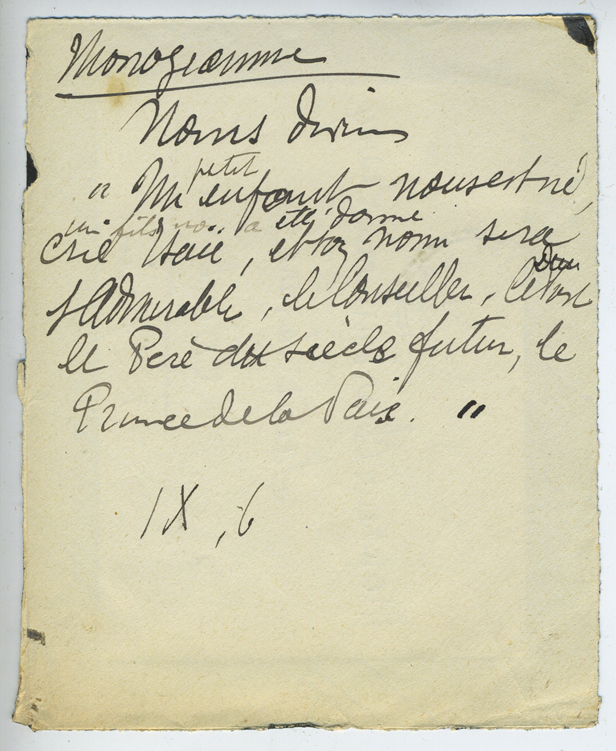 Monogramme
Noms divins
petit
" Un enfant nous est né,
un fils nous a été donné
crie Isaïe, et son nom sera
Dieu
l'Admirable, le Conseiller, le fort
le Père du siècle futur, le
Prince de la Paix. "
IX, 6